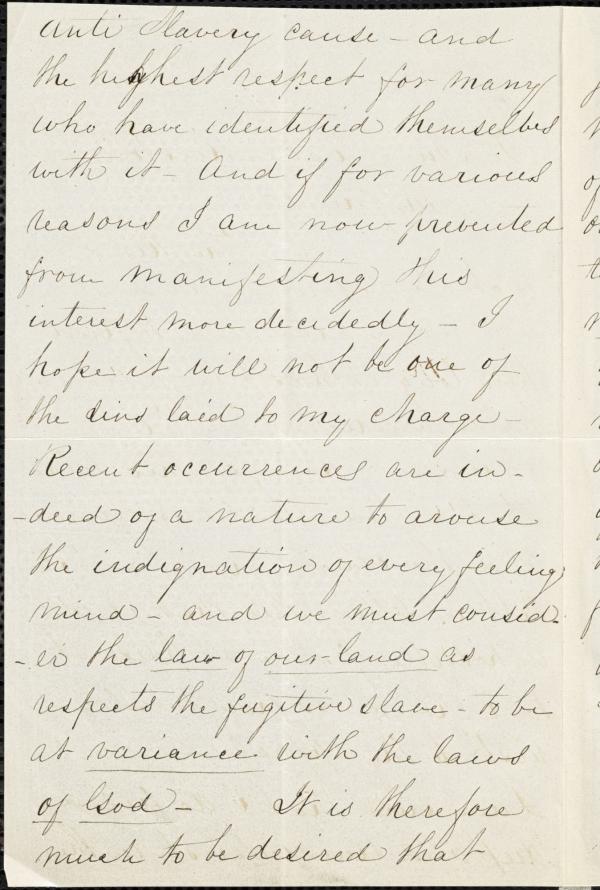 anti Slavery cause - and
the highest respect for many
who have identified themselves
with it - And if for various
reasons I am now prevented
from manifesting this
interest more decidedly - I
hope it will not be one of
the sins laid to my charge -
Recent occurrences are in-
-deed of a nature to arouse
the indignation of every feeling
mind - and we must consid-
-er the law of our land as
respects the fugitive slave - to be
at variance with the laws
of God - It is therefore
much to be desired that